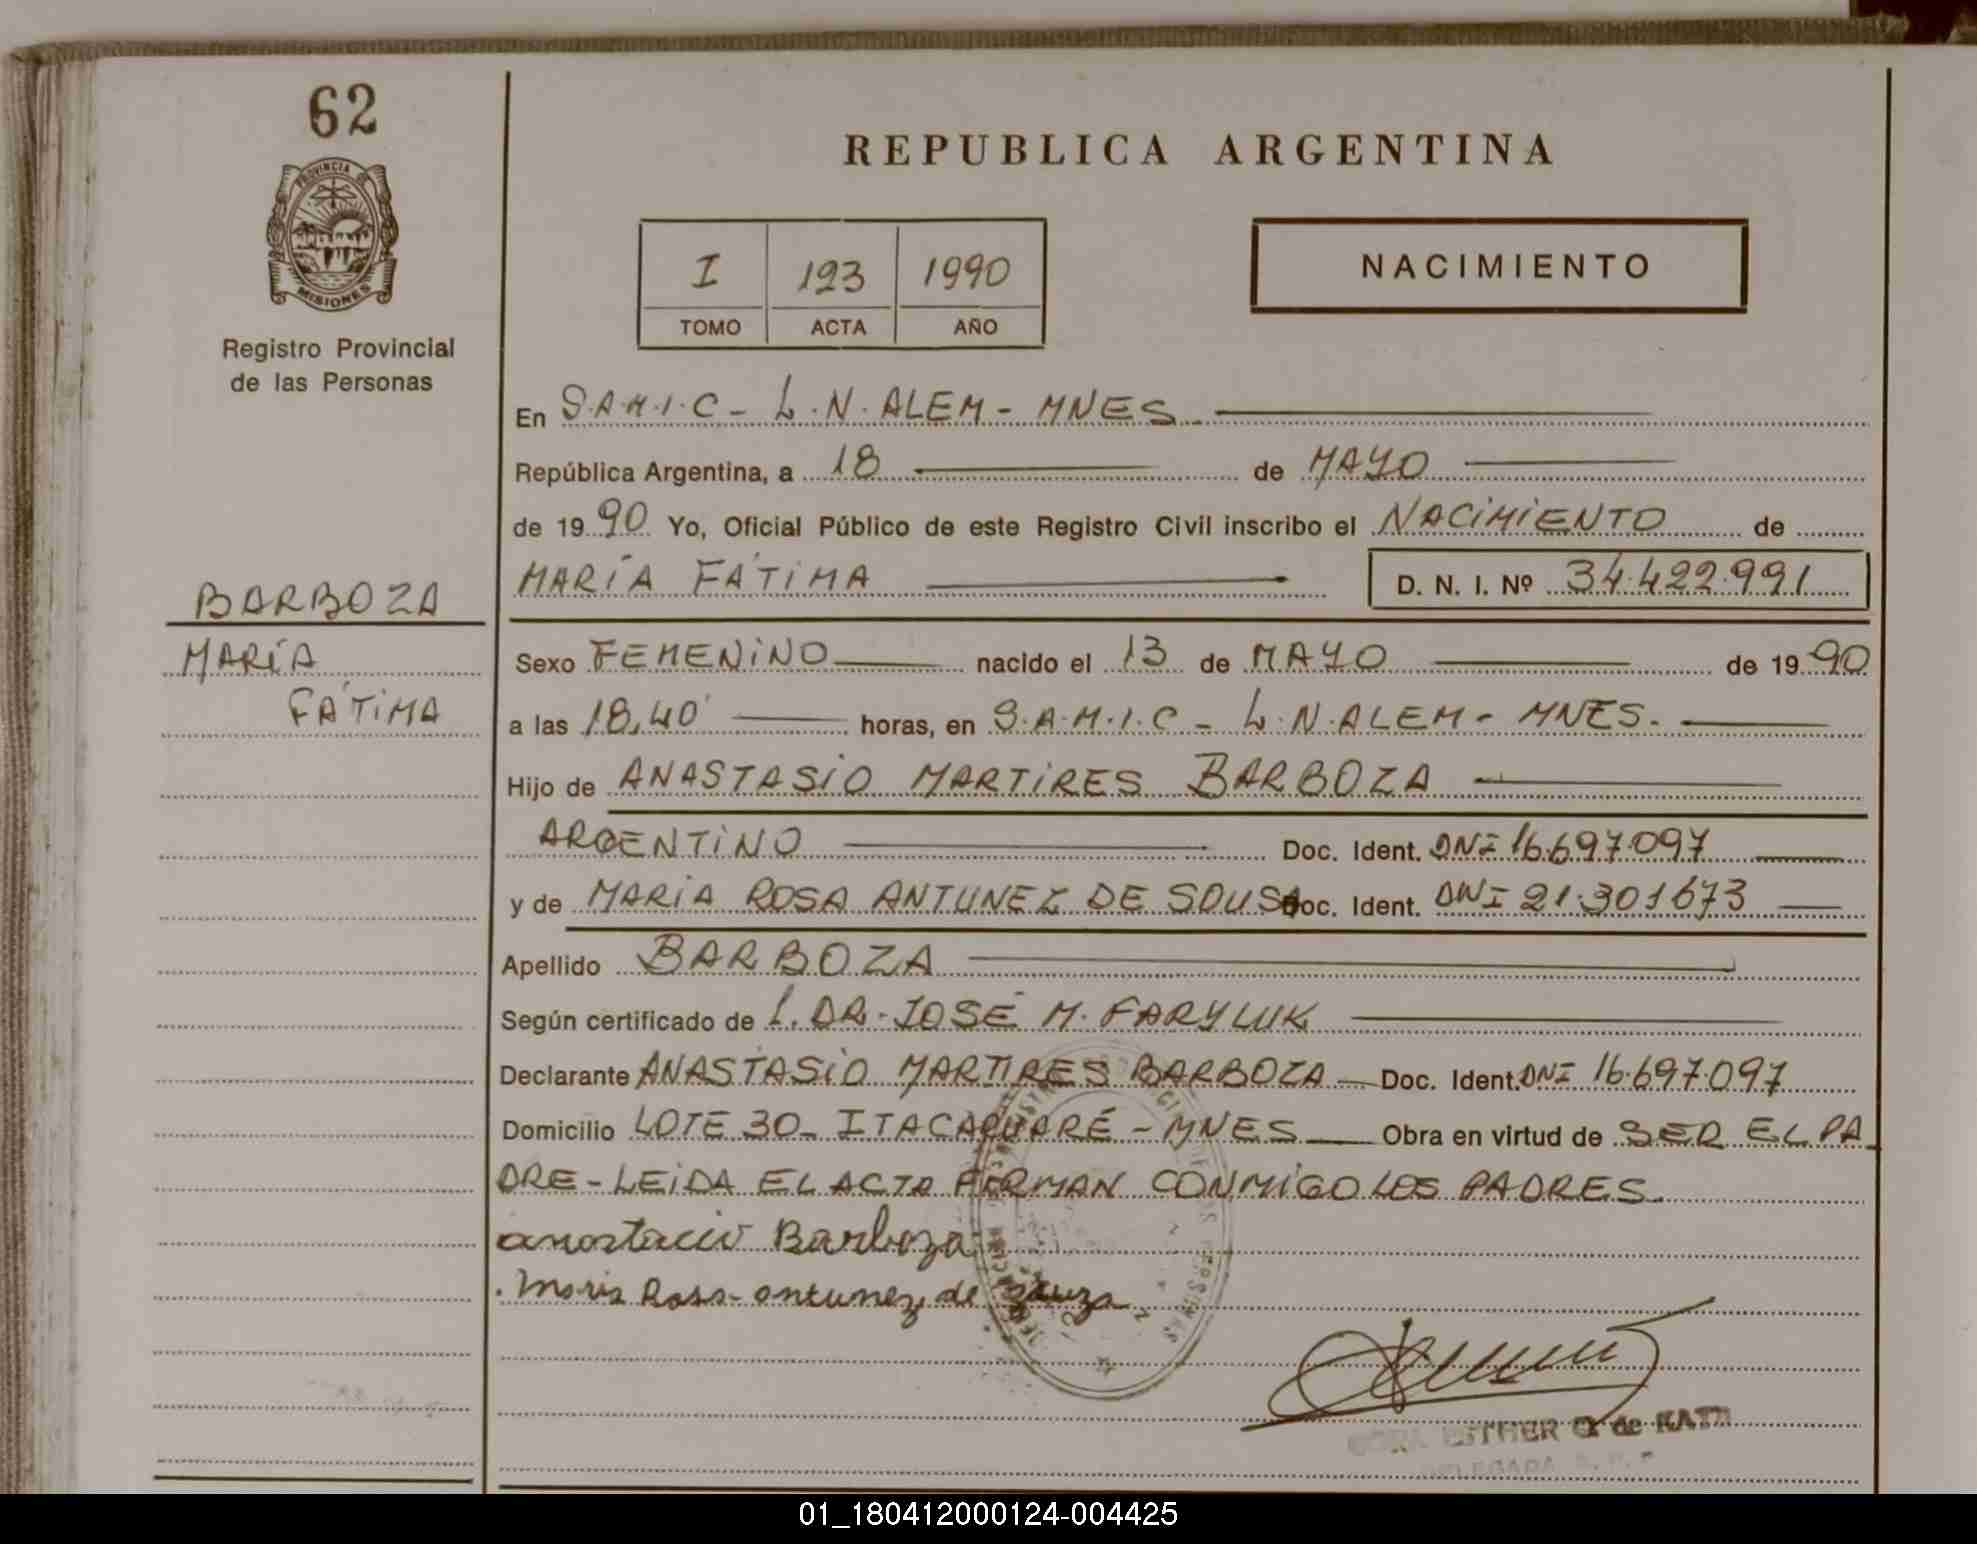 62
PROVINCIA DE
MISIONES
Registro Provincial
de las Personas
BARBOZA
MARÍA
FÁTIMA
REPUBLICA ARGENTINA
I 123 1990
TOMO ACTA AÑO
NACIMIENTO
En S.A.M.I.C - L.N.ALEM - MNES
República Argentina, a 18 de MAYO
de 1990 Yo, Oficial Público de este Registro Civil inscribo el NACIMIENTO de
MARÍA FÁTIMA D. N. I. Nº 34.422.991
Sexo FEMENINO nacido el 13 de MAYO de 1990
a las 18,40 horas, en S.A.M.I.C - L.N.ALEM - MNES.
Hijo de ANASTASIO MARTIRES BARBOZA
ARGENTINO Doc. Ident. DNI 16.697.097
y de MARIA ROSA ANTUNEZ DE SOUSA Doc. Ident. DNI 21.301673
Apellido BARBOZA
Según certificado de l. DR. JOSÉ M. FARYLUK
Declarante ANASTASIO MARTIRES BARBOZA - Doc. Ident. DNI 16.697.097
Domicilio LOTE 30 - ITACARUARÉ - MNES Obra en virtud de SER EL PA
DRE - LEIDA EL ACTA FIRMAN CONMIGO LOS PADRES
anastacio Barboza
Maria Rosa antunez de
ESTHER de
DELEGADA
01_180412000124-004425